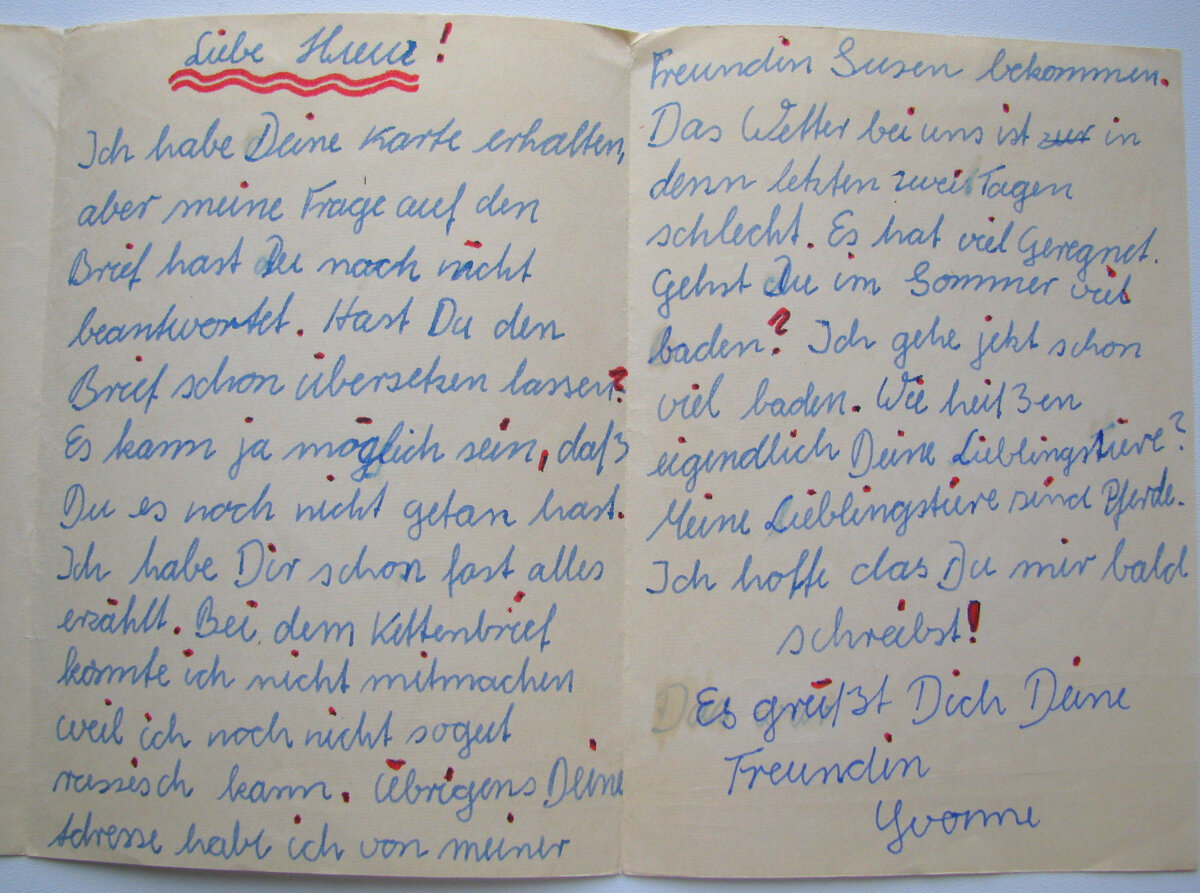 Liebe !
Ich habe Deine Karte erhalten,
aber meine Frage auf den
Brief hast Du noch nicht
beantwortet. Hast Du den
Brief schon übersetzen lassen?
Es kann ja möglich sein, daß
Du es noch nicht getan hast.
Ich habe Dir schon fast alles
erzählt. Bei dem Kettenbrief
konnte ich nicht mitmachen
weil ich noch nicht sogut
russisch kann. Übrigens Deine
Adresse habe ich von meiner
Freundin Susen bekommen.
Das Wetter bei uns ist zur in
denn letzten zwei Tagen
schlecht. Es hat viel Geregnet.
Gehst Du im Sommer viel
baden? Ich gehe jetzt schon
viel baden. Wie heißen
eigendlich Deine Lieblingstiere?
Meine Lieblingstiere sind Pferde.
Ich hoffe das Du mir bald
schreibst!
Es grüßt Dich Deine
Freundin
Yvonne